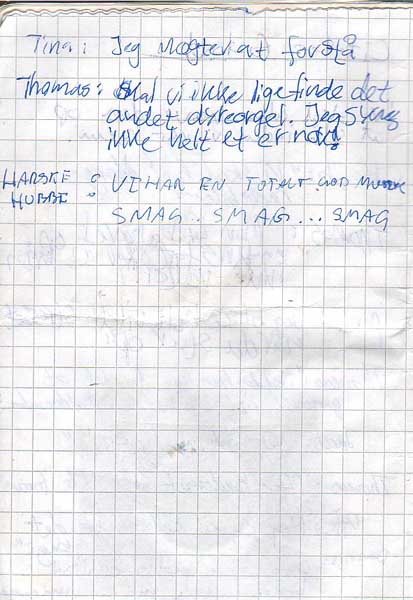 Tina: Jeg nægter at forstå
Thomas: Skal vi ikke lige finde det
andet dyreorgel. Jeg Synes
ikke helt et er nok!
HARSKE : VI HAR EN TOTALT GOD
HUBBE SMAG.. SMAG... SMAG